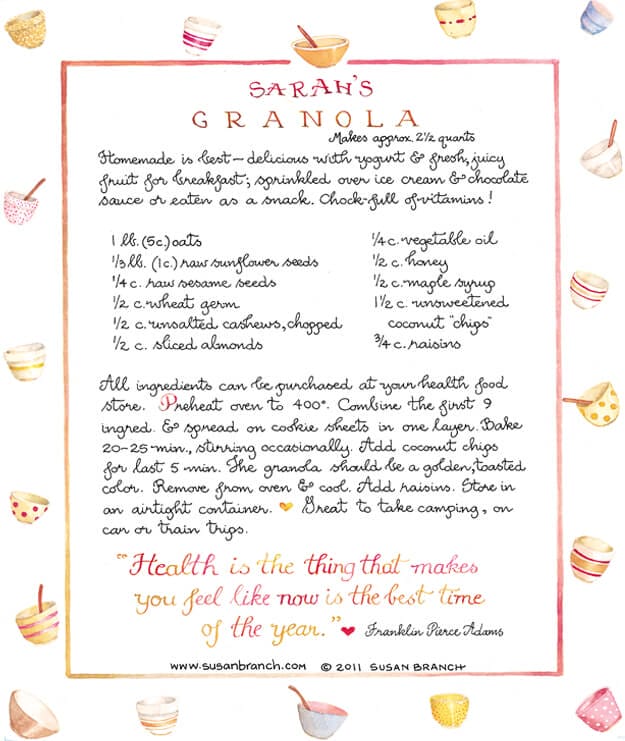 SARAH'S
GRANOLA
Makes approx. 2½ quarts
Homemade is best — delicious with yogurt & fresh, juicy
fruit for breakfast; sprinkled over ice cream & chocolate
sauce or eaten as a snack. Chock-full of vitamins!
1 lb. (5c.) oats
⅓ lb. (1c.) raw sunflower seeds
¼ c. raw sesame seeds
½ c. wheat germ
½ c. unsalted cashews, chopped
½ c. sliced almonds
¼ c. vegetable oil
½ c. honey
½ c. maple syrup
1½ c. unsweetened
coconut "chips"
¾ c. raisins
All ingredients can be purchased at your health food
store. Preheat oven to 400°. Combine the first 9
ingred. & spread on cookie sheets in one layer. Bake
20-25 min., stirring occasionally. Add coconut chips
for last 5 min. The granola should be a golden, toasted
color. Remove from oven & cool. Add raisins. Store in
an airtight container. Great to take camping, on
car or train trips.
"Health is the thing that makes
you feel like now is the best time
of the year." Franklin Pierce Adams
www.susanbranch.com © 2011 SUSAN BRANCH